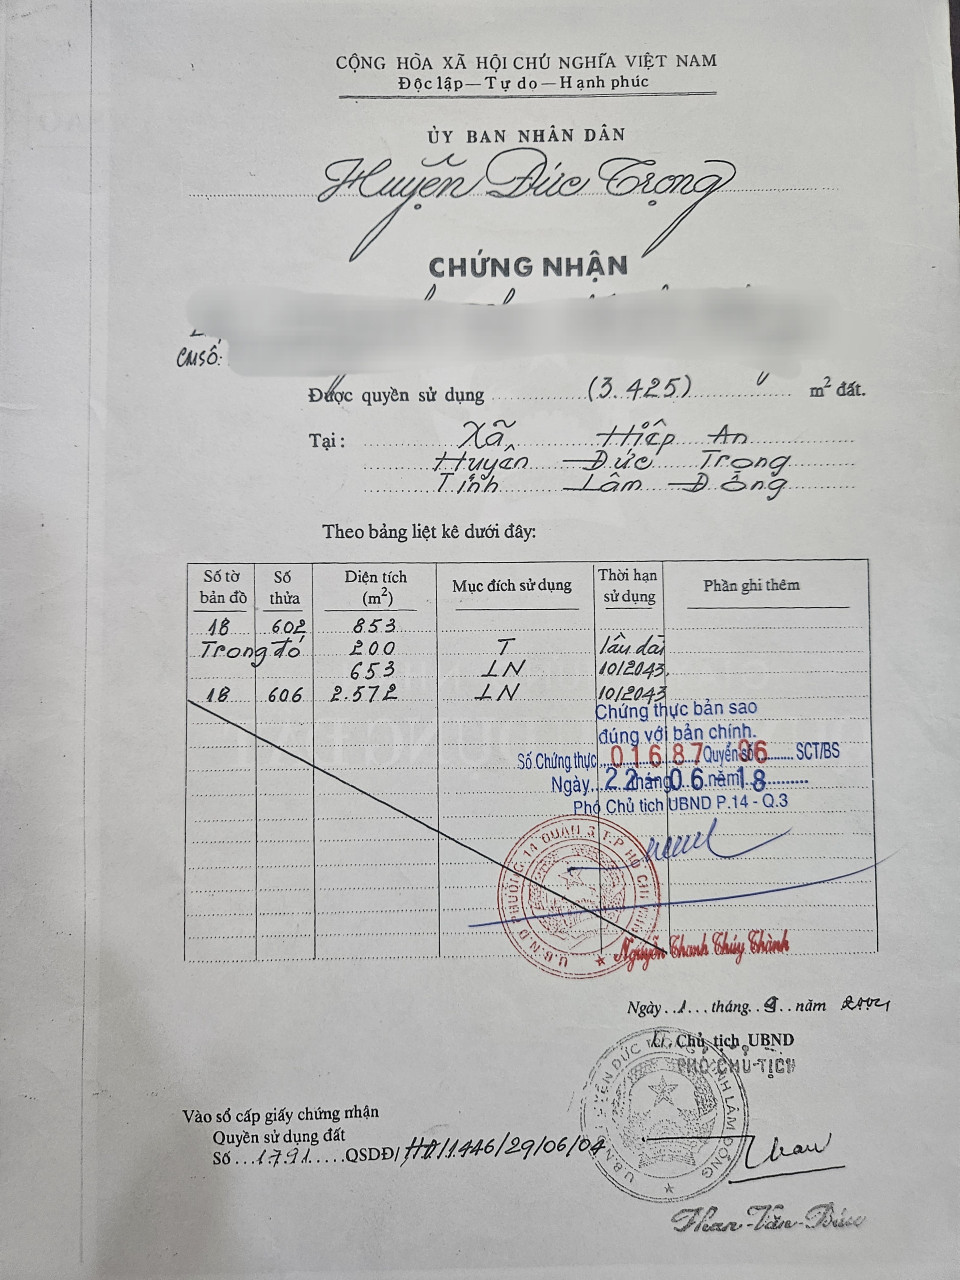 CỘNG HÒA XÃ HỘI CHỦ NGHĨA VIỆT NAM
Độc lập — Tự do — Hạnh phúc
ỦY BAN NHÂN DÂN
Huyện Đức Trọng
CHỨNG NHẬN
CM SỐ:
Được quyền sử dụng (3.425) m² đất.
Tại: Xã Hiếp An
Huyện Đức Trọng
Tỉnh Lâm Đồng
Theo bảng liệt kê dưới đây:
Số tờ bản đồ Số thửa Diện tích (m²) Mục đích sử dụng Thời hạn sử dụng Phần ghi thêm
18 602 853
Trong đó 200 T lâu dài
653 LN 10/2043.
18 606 2.572 LN 10/2043
Chứng thực bản sao
đúng với bản chính.
Số Chứng thực 01687 Quyển số 06 SCT/BS
Ngày 22 tháng 06 năm 18
Phó Chủ tịch UBND P.14 - Q.3
U.B.N.D PHƯỜNG 14 QUẬN 3 T.P HỒ CHÍ MINH
Nguyễn Thanh Thúy Thành
Ngày 1 tháng 9 năm 2004
Chủ tịch UBND
PHÓ CHỦ TỊCH
U.B.N.D HUYỆN ĐỨC TRỌNG TỈNH LÂM ĐỒNG
Vào sổ cấp giấy chứng nhận
Quyền sử dụng đất
Số 1791 QSDĐ/ /1446/29/06/04
Phan Văn